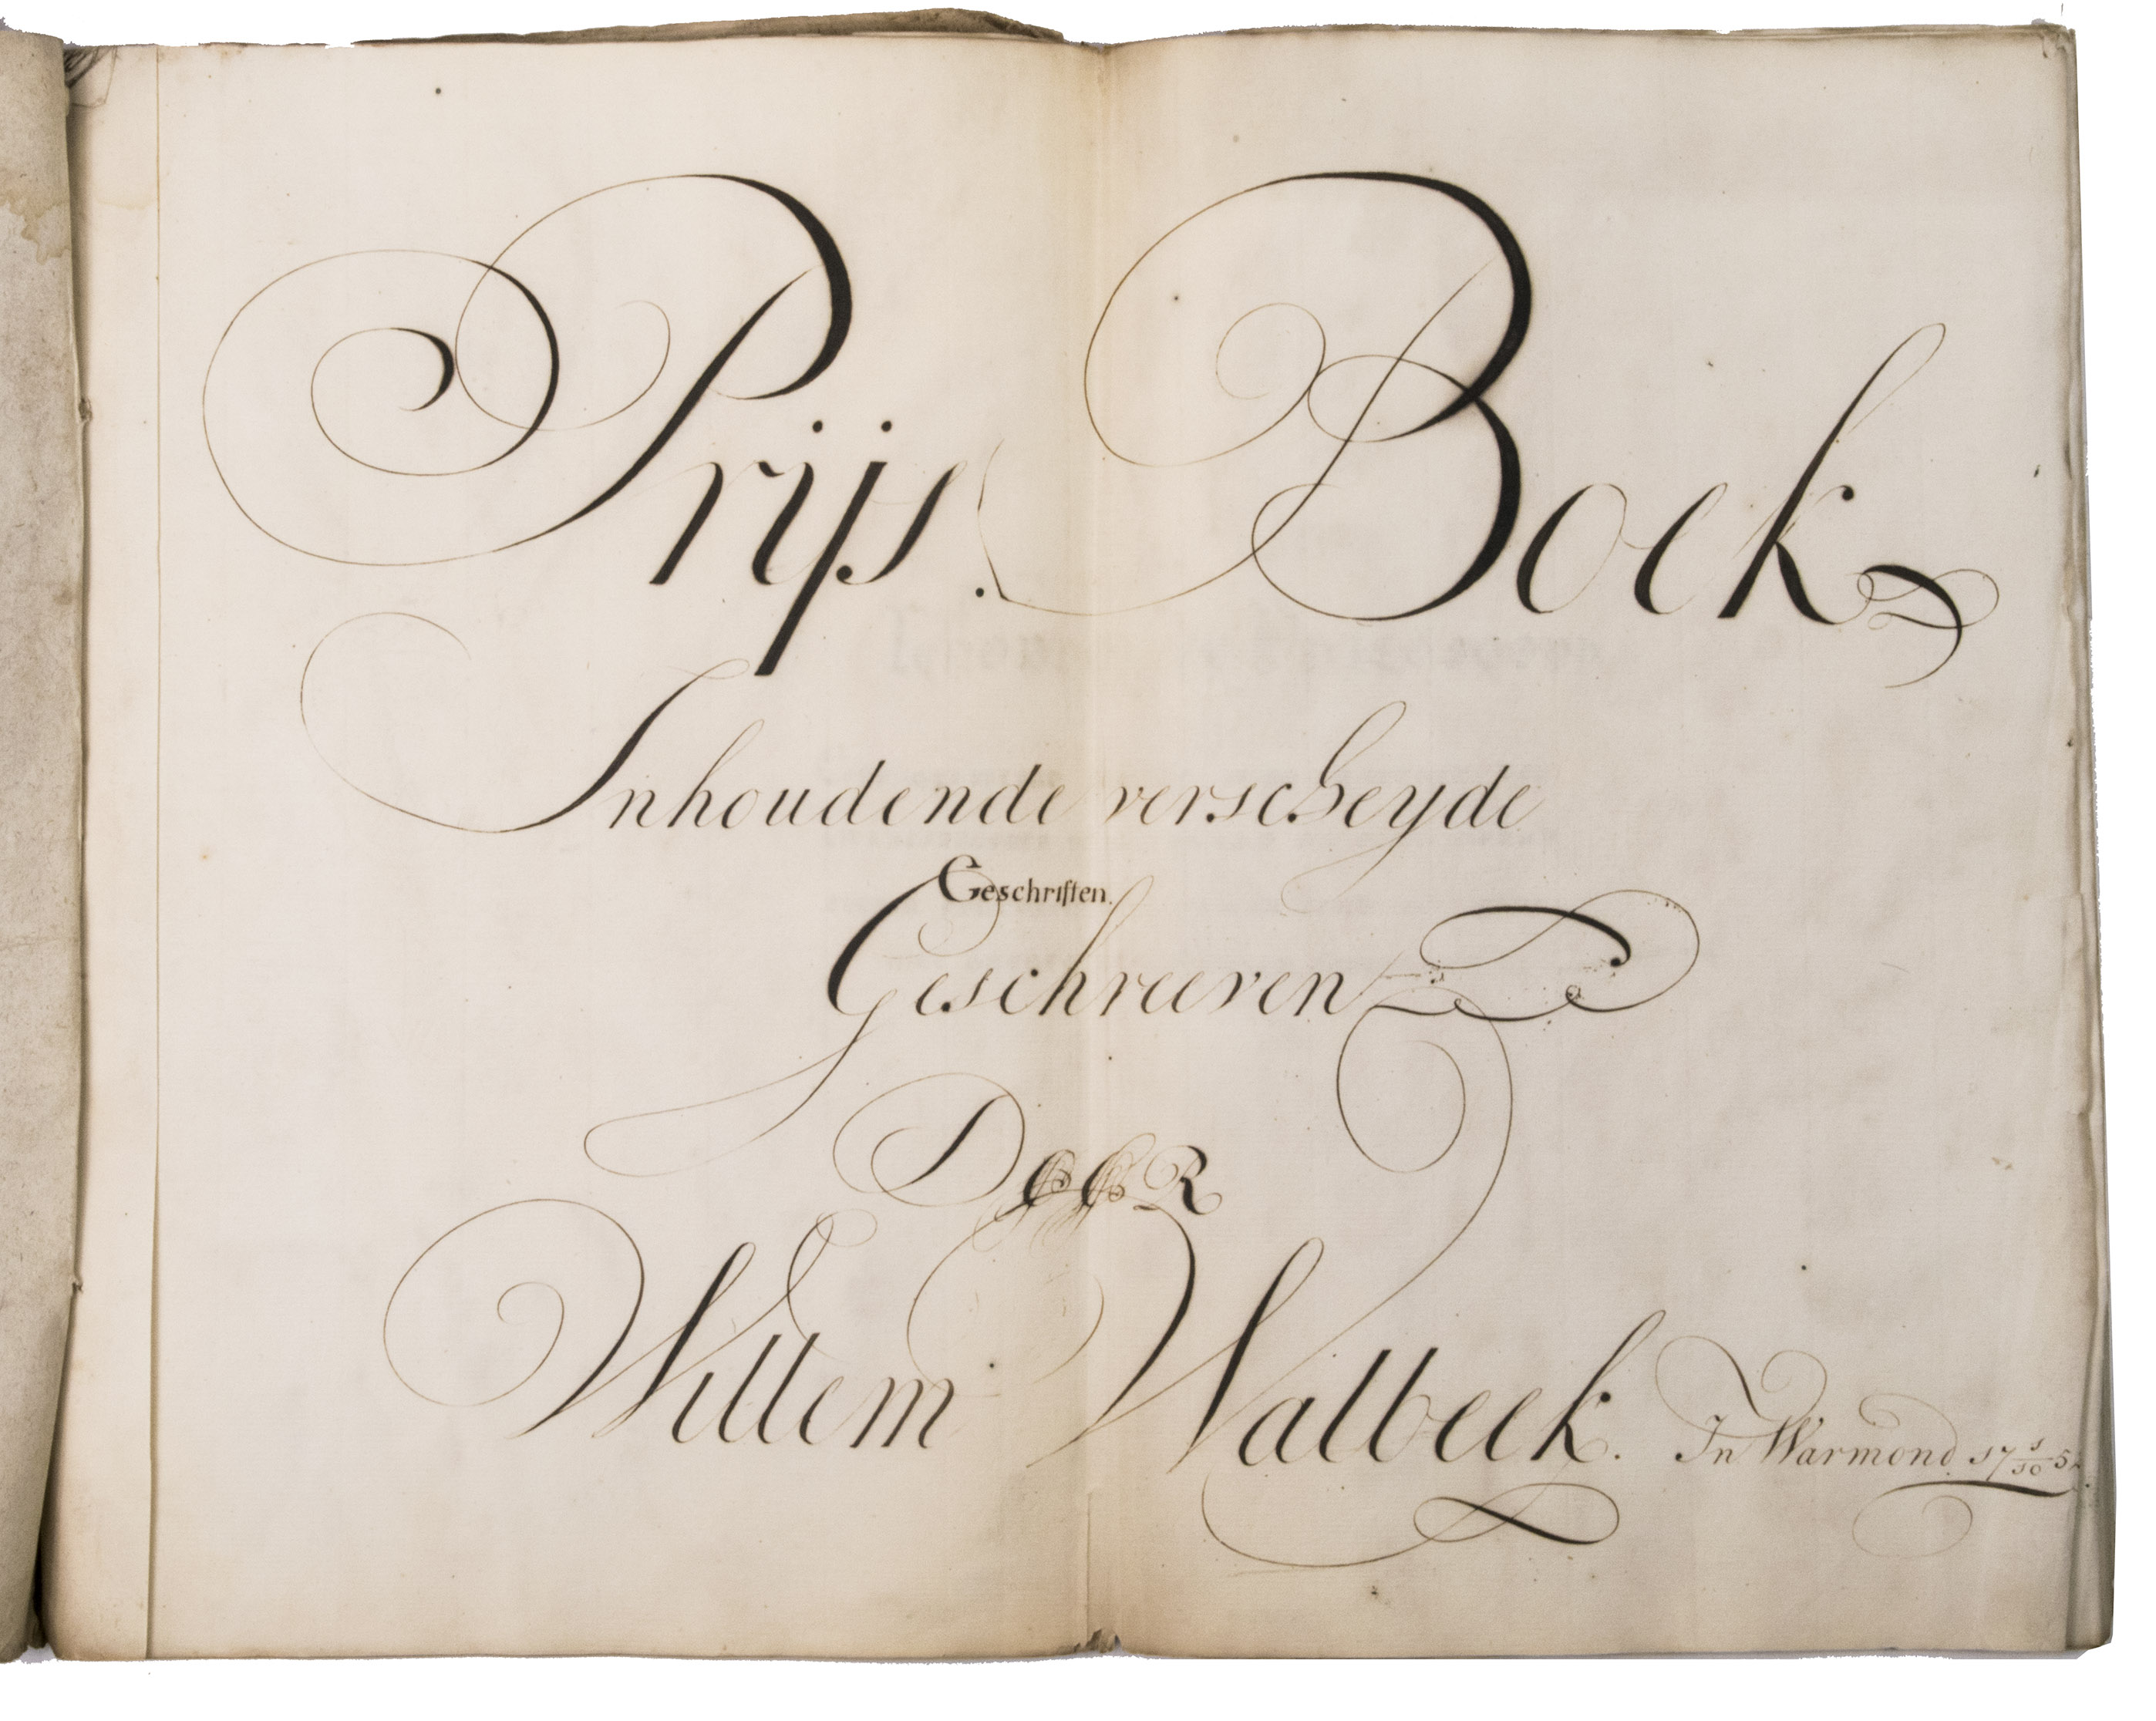 Prijs. Boek
Inhoudende verscheyde
Geschriften.
Geschreeven
DOOR
Willem Walbeek. In Warmond